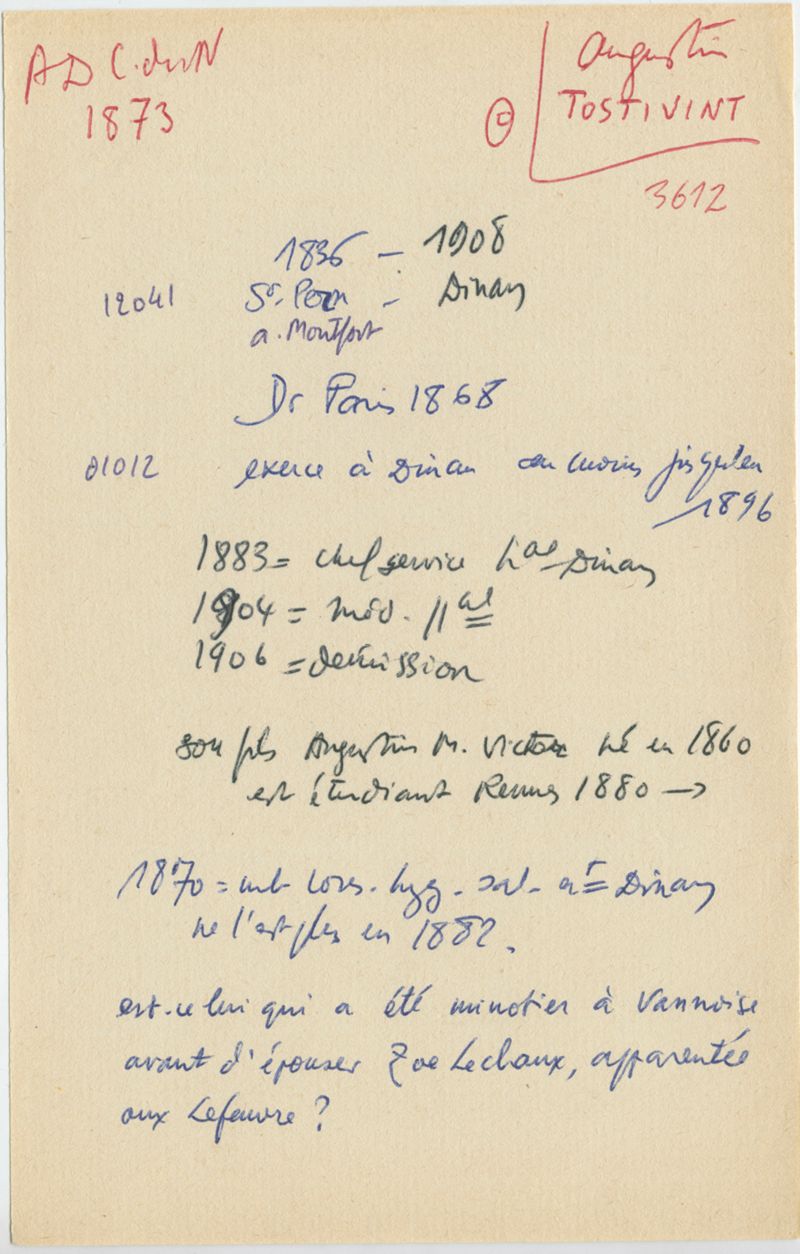 AD C.duN
1873
Augustin
© TOSTIVINT
3612
1836 – 1908
12041 St-Pern – Dinan
a. Montfort
Dr Paris 1868
01012 exerce à Dinan au moins jusqu'en
1896
1883 = chef service hal Dinan
1904 = méd. pal
1906 = démission
son fils Augustin M. Victor né en 1860
est étudiant Rennes 1880 →
1870 = mb cons. hyg. sal. art Dinan
ne l'est plus en 1882.
est-ce lui qui a été minotier à Vannoise
avant d'épouser Zoe Lechaux, apparentée
aux Lefeuvre ?